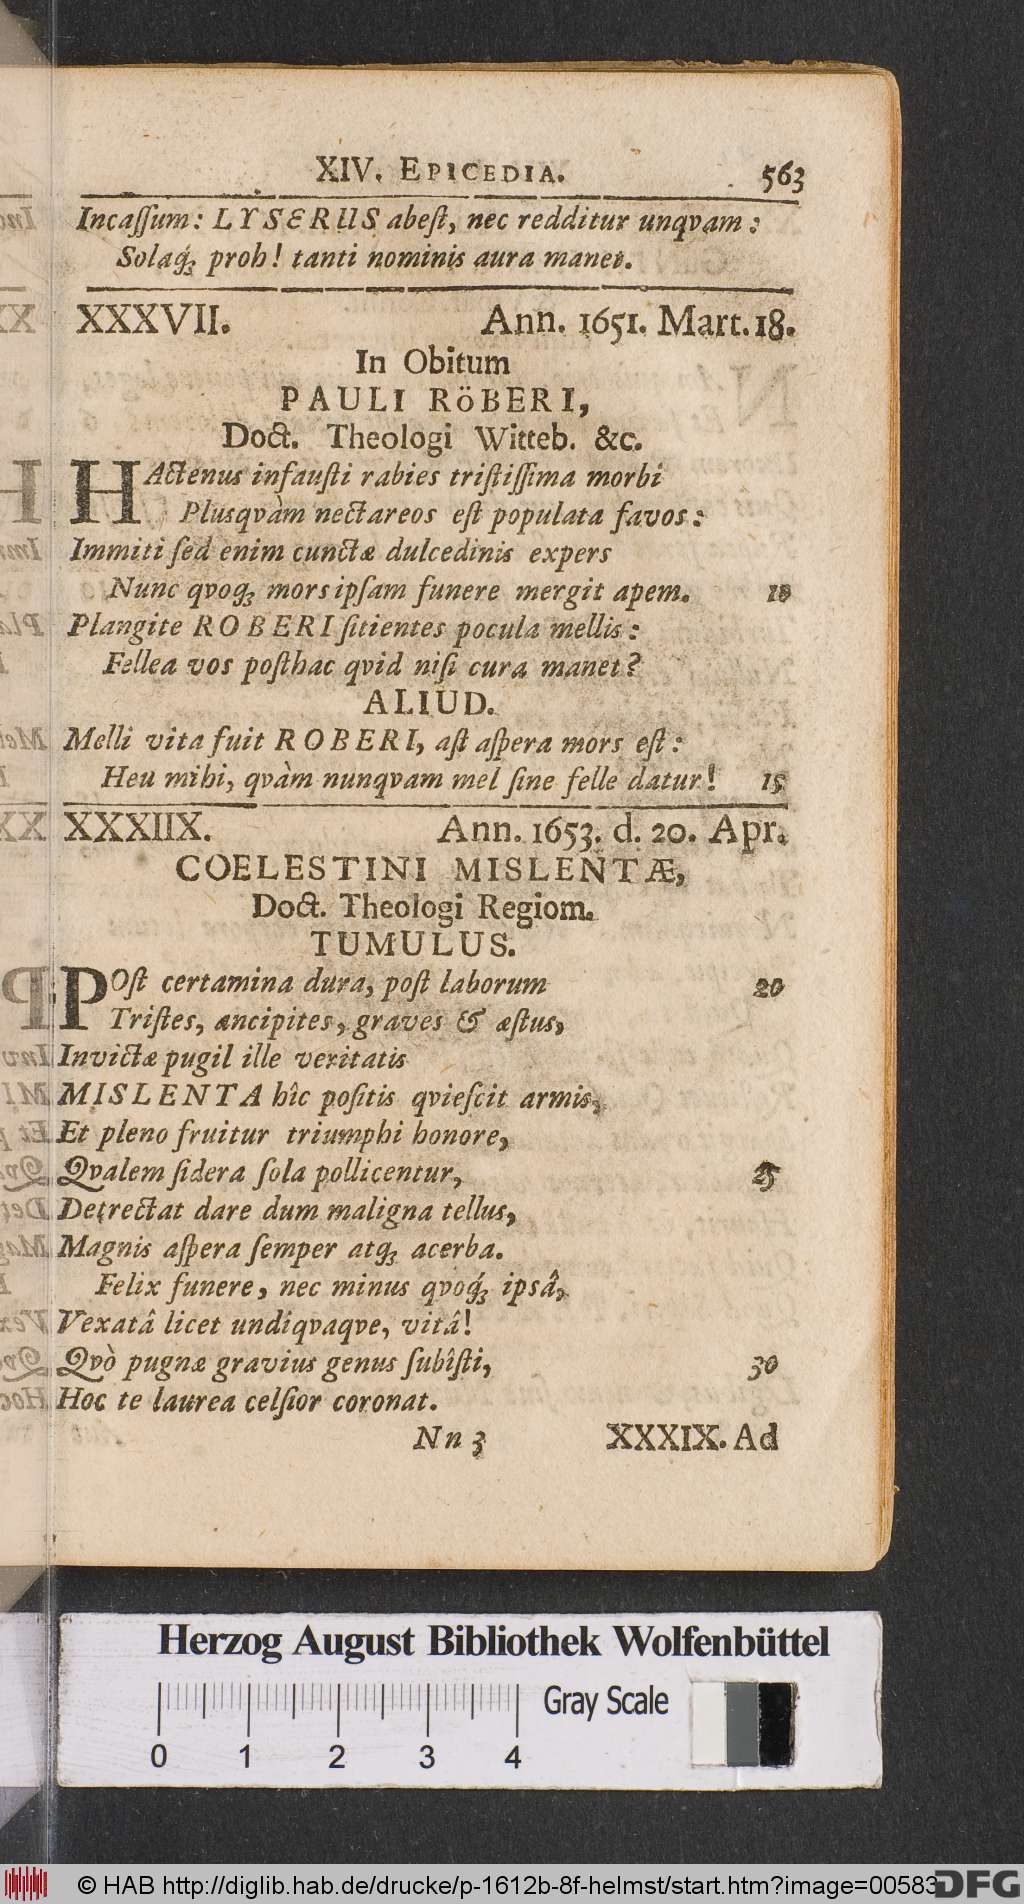 XIV. EPICEDIA. 563
Incaſſum: LYSERUS abeſt, nec redditur unqvam:
Solaq́ꝫ proh! tanti nominis aura manet.
XXXVII. Ann. 1651. Mart. 18.
In Obitum
PAULI RöBERI,
Doct. Theologi Witteb. &c.
HActenus infauſti rabies triſtiſſima morbi
Plusqvàm nectareos eſt populata favos:
Immiti ſed enim cunctæ dulcedinis expers
Nunc qvoqꝫ mors ipſam funere mergit apem. 10
Plangite ROBERI ſitientes pocula mellis:
Fellea vos poſthac qvid niſi cura manet?
ALIUD.
Melli vita fuit ROBERI, aſt aſpera mors eſt:
Heu mihi, qvàm nunqvam mel ſine felle datur! 15
XXXIIX. Ann. 1653. d. 20. Apr.
COELESTINI MISLENTÆ,
Doct. Theologi Regiom.
TUMULUS.
POſt certamina dura, poſt laborum 20
Triſtes, ancipites, graves & æſtus,
Invictæ pugil ille veritatis
MISLENTA hîc poſitis qvieſcit armis,
Et pleno fruitur triumphi honore,
Qvalem ſidera ſola pollicentur, 25
Detrectat dare dum maligna tellus,
Magnis aſpera ſemper atqꝫ acerba.
Felix funere, nec minus qvoq́ꝫ ipsâ,
Vexatâ licet undiqvaqve, vitâ!
Qvò pugnæ gravius genus ſubîſti, 30
Hoc te laurea celſior coronat.
Nn 3 XXXIX. Ad
Herzog August Bibliothek Wolfenbüttel
Gray Scale
0 1 2 3 4
© HAB http://diglib.hab.de/drucke/p-1612b-8f-helmst/start.htm?image=00583
DFG